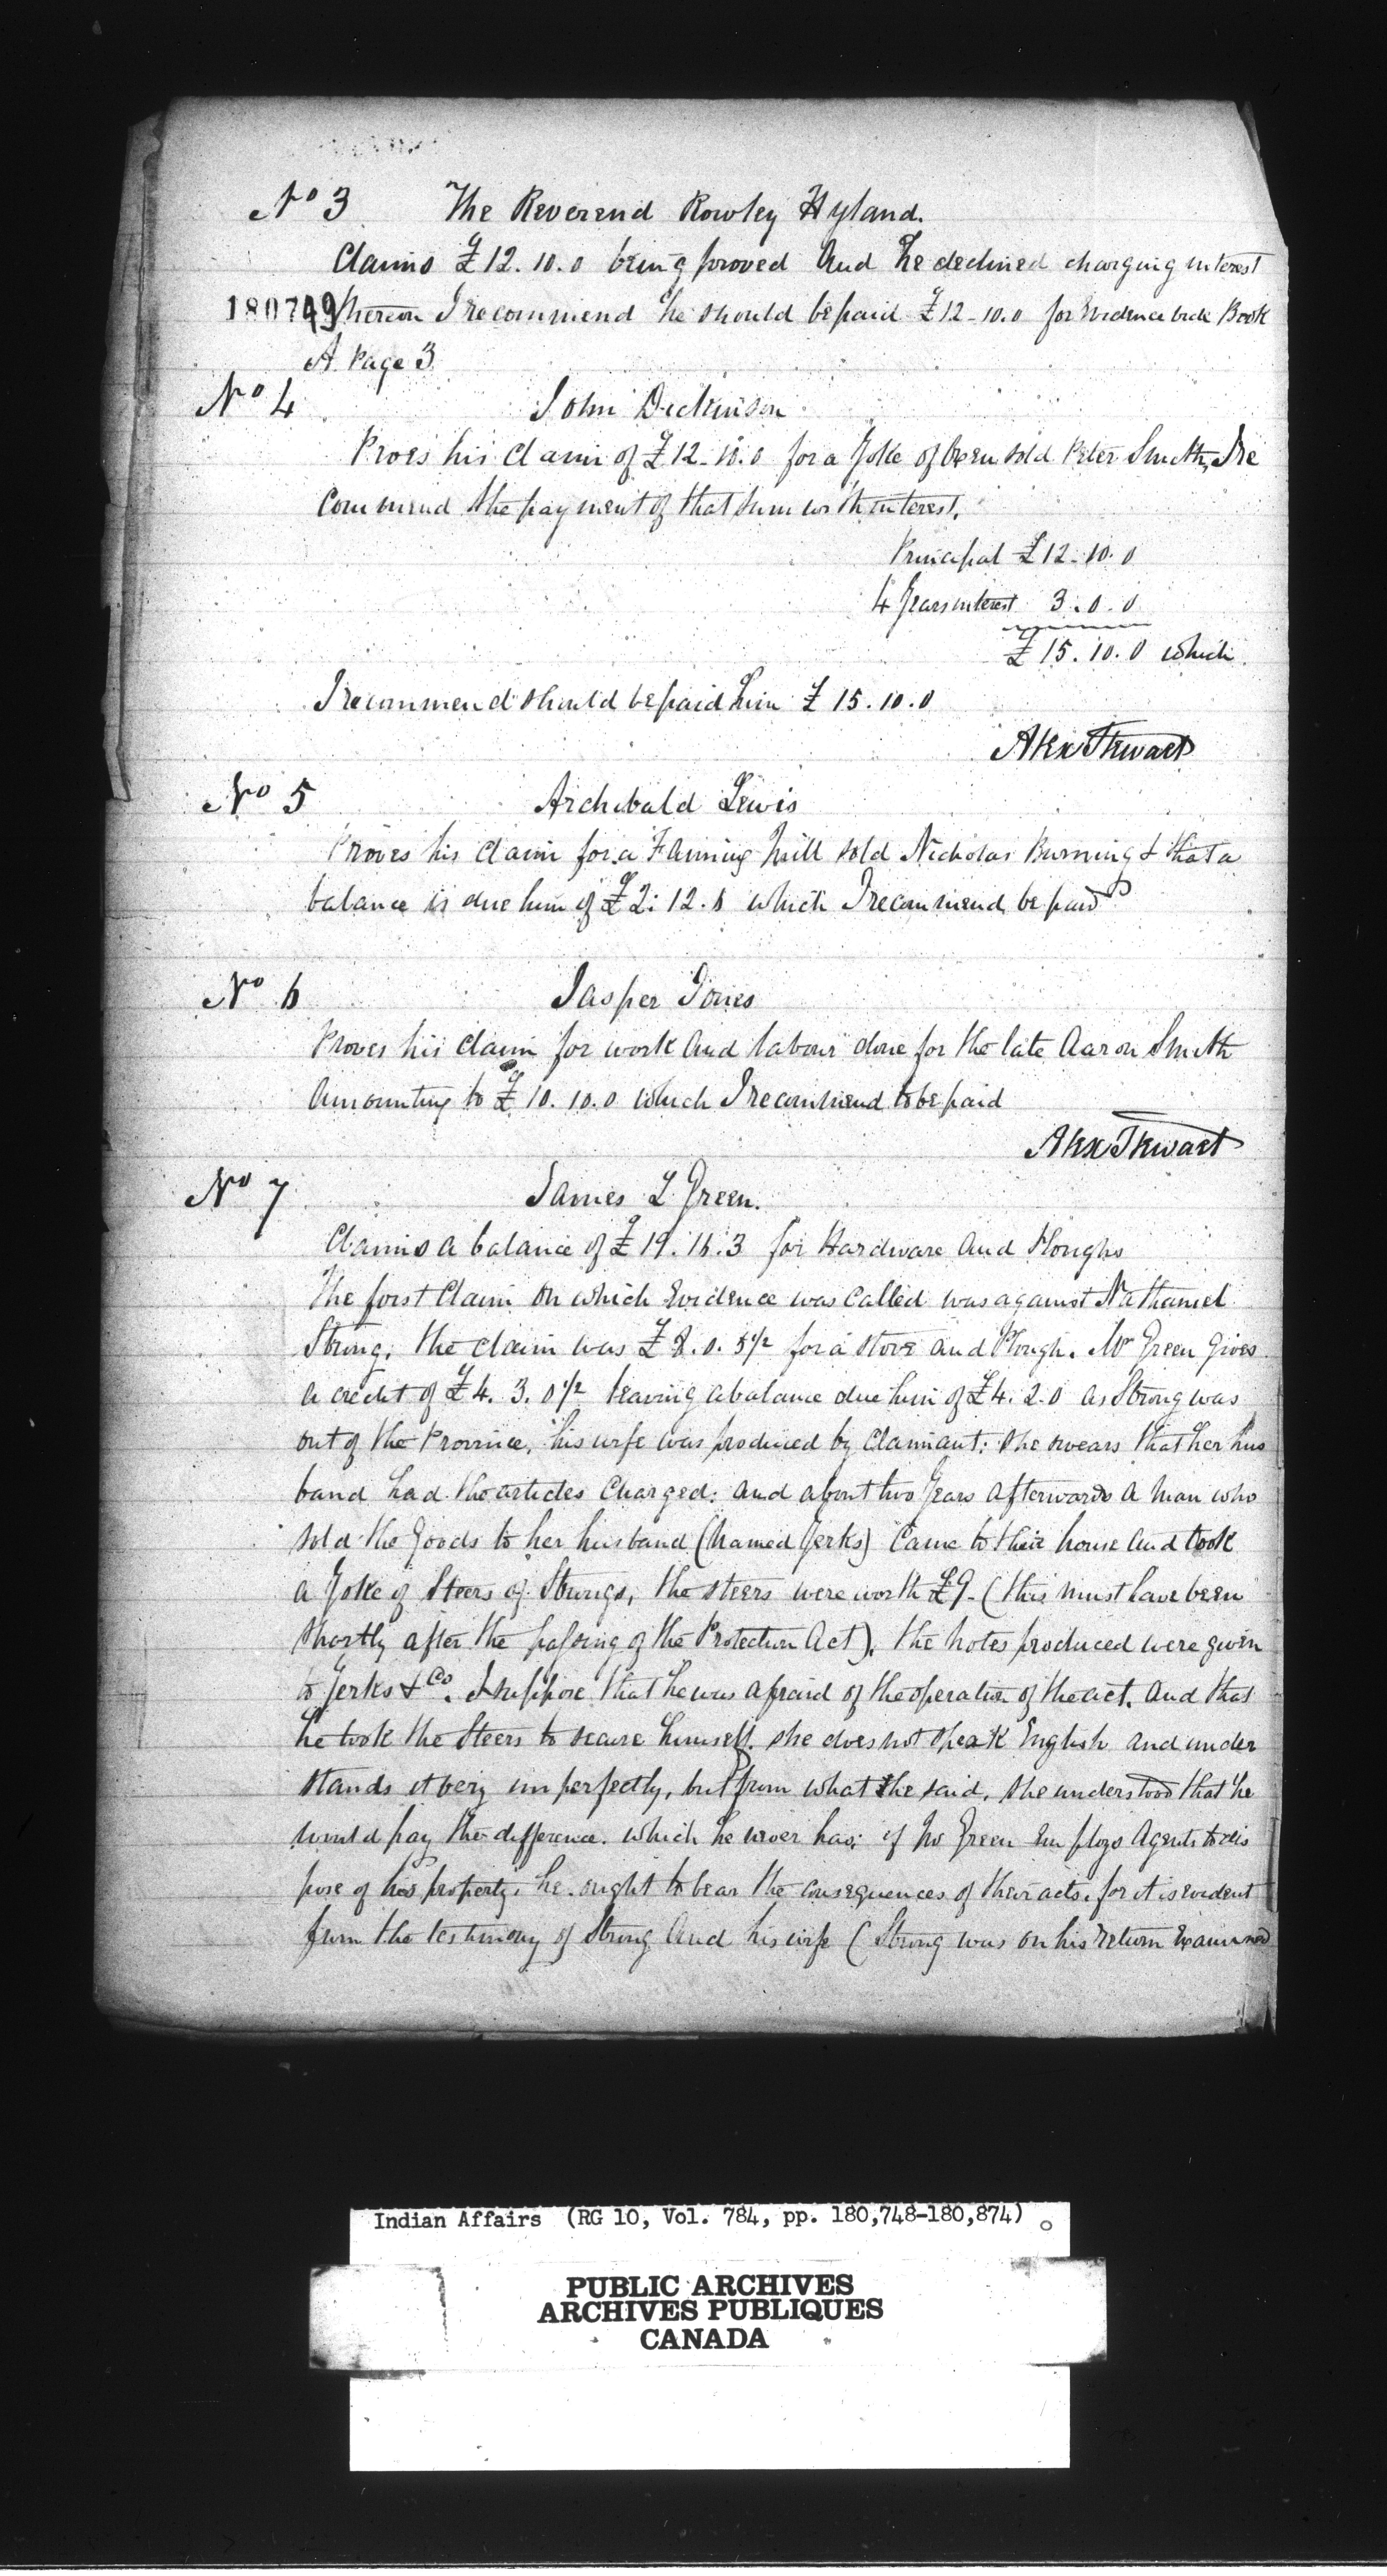 No 3 The Reverend Rowley Hyland.
Claims £12.10.0 being proved And he declined charging interest
180749 thereon I recommend he should be paid £12-10.0 for Evidence vide Book
A Page 3
No 4 John Dickinson
Proves his claim of £12-10.0 for a Yoke of Oxen sold Peter Smith, I re
commend the payment of that sum with interest.
Principal £12-10.0
4 Years interest 3.0.0
£15.10.0 which
I recommend should be paid him £15.10.0
Alex Stewart
No 5 Archibald Lewis
Proves his claim for a Fanning Mill sold Nicholas Burning & that a
balance is due him of £2:12.8 which I recommend be paid
No 6 Jasper Jones
Proves his claim for work And labour done for the late Aaron Smith
Amounting to £10.10.0 which I recommend to be paid
Alex Stewart
No 7 James L Green.
Claims a balance of £19.16.3 for Hardware And Ploughs
The first Claim on which Evidence was called was against Nathaniel
Strong. the claim was £8.0.5½ for a stove and Plough. Mr Green gives
a credit of £4.3.0½ leaving a balance due him of £4.2.0 as Strong was
out of the Province, his wife was produced by Claimant: she swears that her hus
band had the articles Charged: and about two Years afterwards a man who
sold the Goods to her husband (Named Yerks) Came to their house and took
a Yoke of Steers of Strongs, the steers were worth £9- (this must have been
shortly after the passing of the Protection Act). the notes produced were given
to Yerks & Co. I suppose that he was afraid of the operation of the act. And that
he took the Steers to secure himself. she does not speak English and under
stands it very imperfectly, but from what she said, she understood that he
would pay the difference. which he never has: if Mr Green Employs Agents to dis
pose of his property, he ought to bear the consequences of their acts. for it is evident
from the testimony of Strong and his wife (Strong was on his return Examined
Indian Affairs (RG 10, Vol. 784, pp. 180,748-180,874)
PUBLIC ARCHIVES
ARCHIVES PUBLIQUES
CANADA